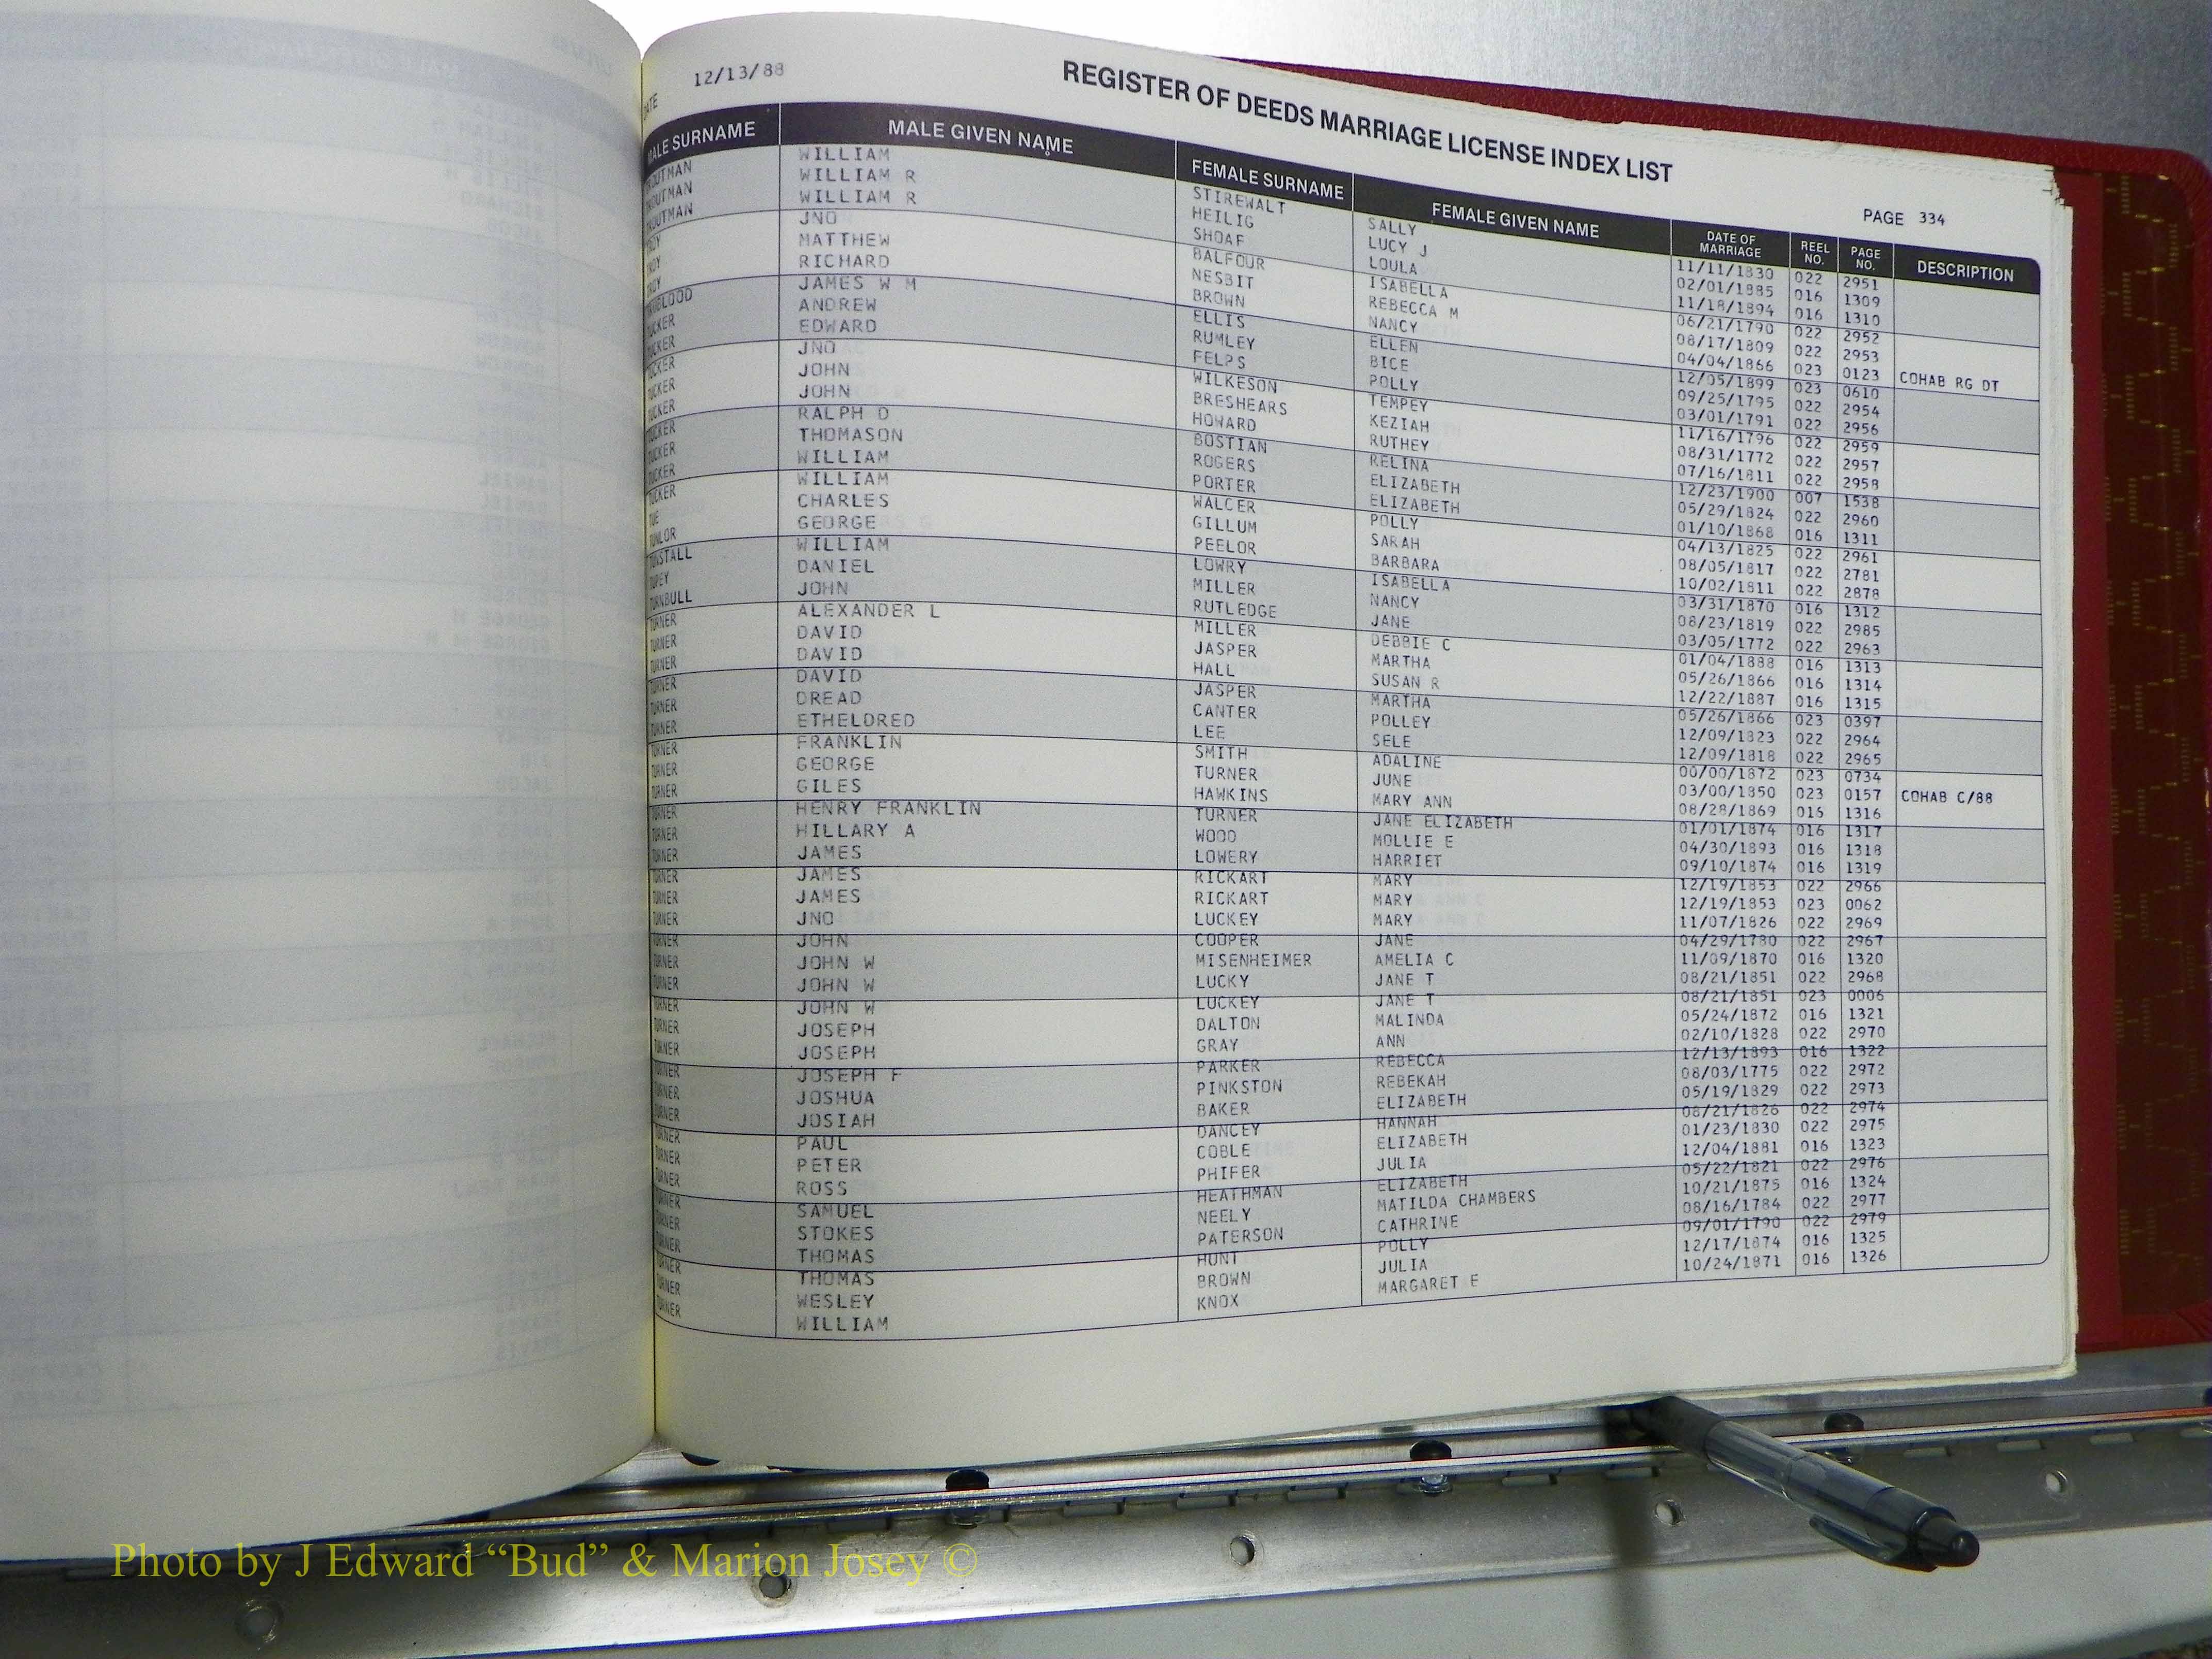 DATE 12/13/88
REGISTER OF DEEDS MARRIAGE LICENSE INDEX LIST
PAGE 334
MALE SURNAME MALE GIVEN NAME FEMALE SURNAME FEMALE GIVEN NAME DATE OF MARRIAGE REEL NO. PAGE NO. DESCRIPTION
TROUTMAN WILLIAM STIREWALT SALLY 11/11/1830 022 2951
TROUTMAN WILLIAM R HEILIG LUCY J 02/01/1885 016 1309
TROUTMAN WILLIAM R SHOAF LOULA 11/18/1894 016 1310
TROY JNO BALFOUR ISABELLA 06/21/1790 022 2952
TROY MATTHEW NESBIT REBECCA M 08/17/1809 022 2953
TROY RICHARD BROWN NANCY 04/04/1866 023 0123 COHAB RG DT
JAMES W M ELLIS ELLEN 12/05/1899 023 0610
TUCKER ANDREW RUMLEY BICE 09/25/1795 022 2954
TUCKER EDWARD FELPS POLLY 03/01/1791 022 2956
TUCKER JNO WILKESON TEMPEY 11/16/1796 022 2959
TUCKER JOHN BRESHEARS KEZIAH 08/31/1772 022 2957
TUCKER JOHN HOWARD RUTHEY 07/16/1811 022 2958
TUCKER RALPH D BOSTIAN RELINA 12/23/1900 007 1538
TUCKER THOMASON ROGERS ELIZABETH 05/29/1824 022 2960
TUCKER WILLIAM PORTER ELIZABETH 01/10/1868 016 1311
TUE WILLIAM WALCER POLLY 04/13/1825 022 2961
TUNLOR CHARLES GILLUM SARAH 08/05/1817 022 2781
TUNSTALL GEORGE PEELOR BARBARA 10/02/1811 022 2878
TUPEY WILLIAM LOWRY ISABELLA 03/31/1870 016 1312
TURNBULL DANIEL MILLER NANCY 08/23/1819 022 2985
TURNER JOHN RUTLEDGE JANE 03/05/1772 022 2963
TURNER ALEXANDER L MILLER DEBBIE C 01/04/1888 016 1313
TURNER DAVID JASPER MARTHA 05/26/1866 016 1314
TURNER DAVID HALL SUSAN R 12/22/1887 016 1315
TURNER DAVID JASPER MARTHA 05/26/1866 023 0397
TURNER DREAD CANTER POLLEY 12/09/1823 022 2964
TURNER ETHELDRED LEE SELE 12/09/1818 022 2965
TURNER FRANKLIN SMITH ADALINE 00/00/1872 023 0734
TURNER GEORGE TURNER JUNE 03/00/1850 023 0157 COHAB C/88
TURNER GILES HAWKINS MARY ANN 08/28/1869 016 1316
TURNER HENRY FRANKLIN TURNER JANE ELIZABETH 01/01/1874 016 1317
TURNER HILLARY A WOOD MOLLIE E 04/30/1893 016 1318
TURNER JAMES LOWERY HARRIET 09/10/1874 016 1319
TURNER JAMES RICKART MARY 12/19/1853 022 2966
TURNER JAMES RICKART MARY 12/19/1853 023 0062
TURNER JNO LUCKEY MARY 11/07/1826 022 2969
TURNER JOHN COOPER JANE 04/29/1780 022 2967
TURNER JOHN W MISENHEIMER AMELIA C 11/09/1870 016 1320
TURNER JOHN W LUCKY JANE T 08/21/1851 022 2968
TURNER JOHN W LUCKEY JANE T 08/21/1851 023 0006
TURNER JOSEPH DALTON MALINDA 05/24/1872 016 1321
TURNER JOSEPH GRAY ANN 02/10/1828 022 2970
TURNER JOSEPH F PARKER REBECCA 12/13/1893 016 1322
TURNER JOSHUA PINKSTON REBEKAH 08/03/1775 022 2972
TURNER JOSIAH BAKER ELIZABETH 05/19/1829 022 2973
TURNER PAUL DANCEY HANNAH 08/21/1826 022 2974
TURNER PETER COBLE ELIZABETH 01/23/1830 022 2975
TURNER ROSS PHIFER JULIA 12/04/1881 016 1323
TURNER SAMUEL HEATHMAN ELIZABETH 05/22/1821 022 2976
TURNER STOKES NEELY MATILDA CHAMBERS 10/21/1875 016 1324
TURNER THOMAS PATERSON CATHRINE 08/16/1784 022 2977
TURNER THOMAS HUNT POLLY 09/01/1790 022 2979
TURNER WESLEY BROWN JULIA 12/17/1874 016 1325
TURNER WILLIAM KNOX MARGARET E 10/24/1871 016 1326
Photo by J Edward “Bud” & Marion Josey ©